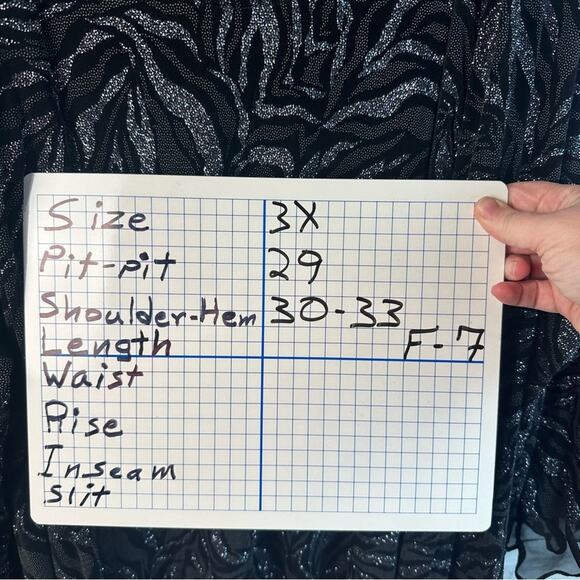 Size 3X
Pit-pit 29
Shoulder-Hem 30-33
Length F-7
Waist
Rise
Inseam
Slit